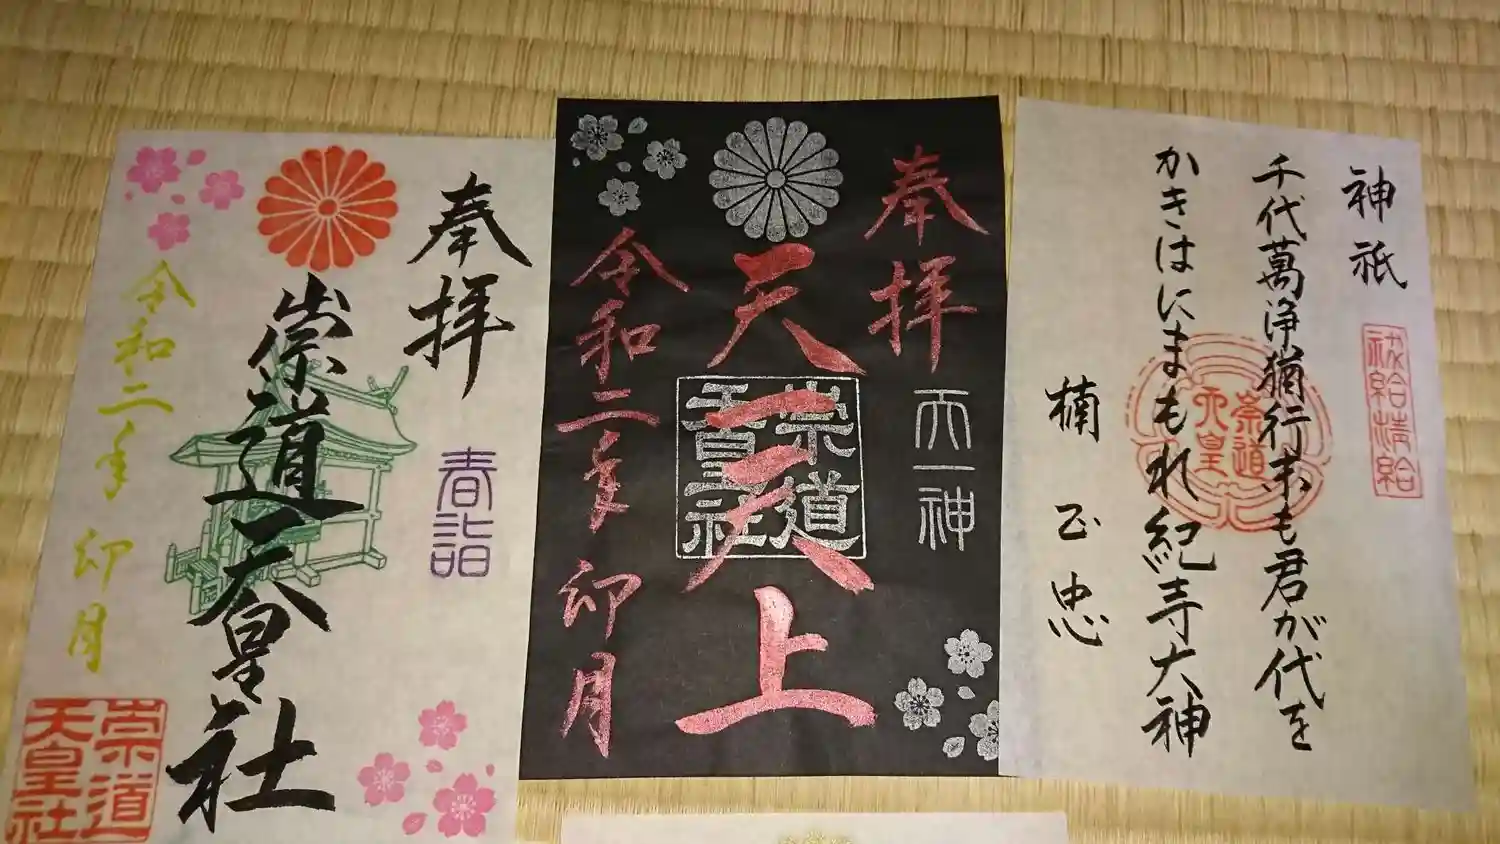 奉拝
春詣
崇道天皇社
令和二年 卯月
崇道
天皇社
奉拝
天一神
天一天上
崇道
天皇社
令和二年 卯月
神祇
祓給清給
千代萬浄猶行末も君が代を
かきはにまもれ紀寺大神
崇道
天皇
楠 正忠